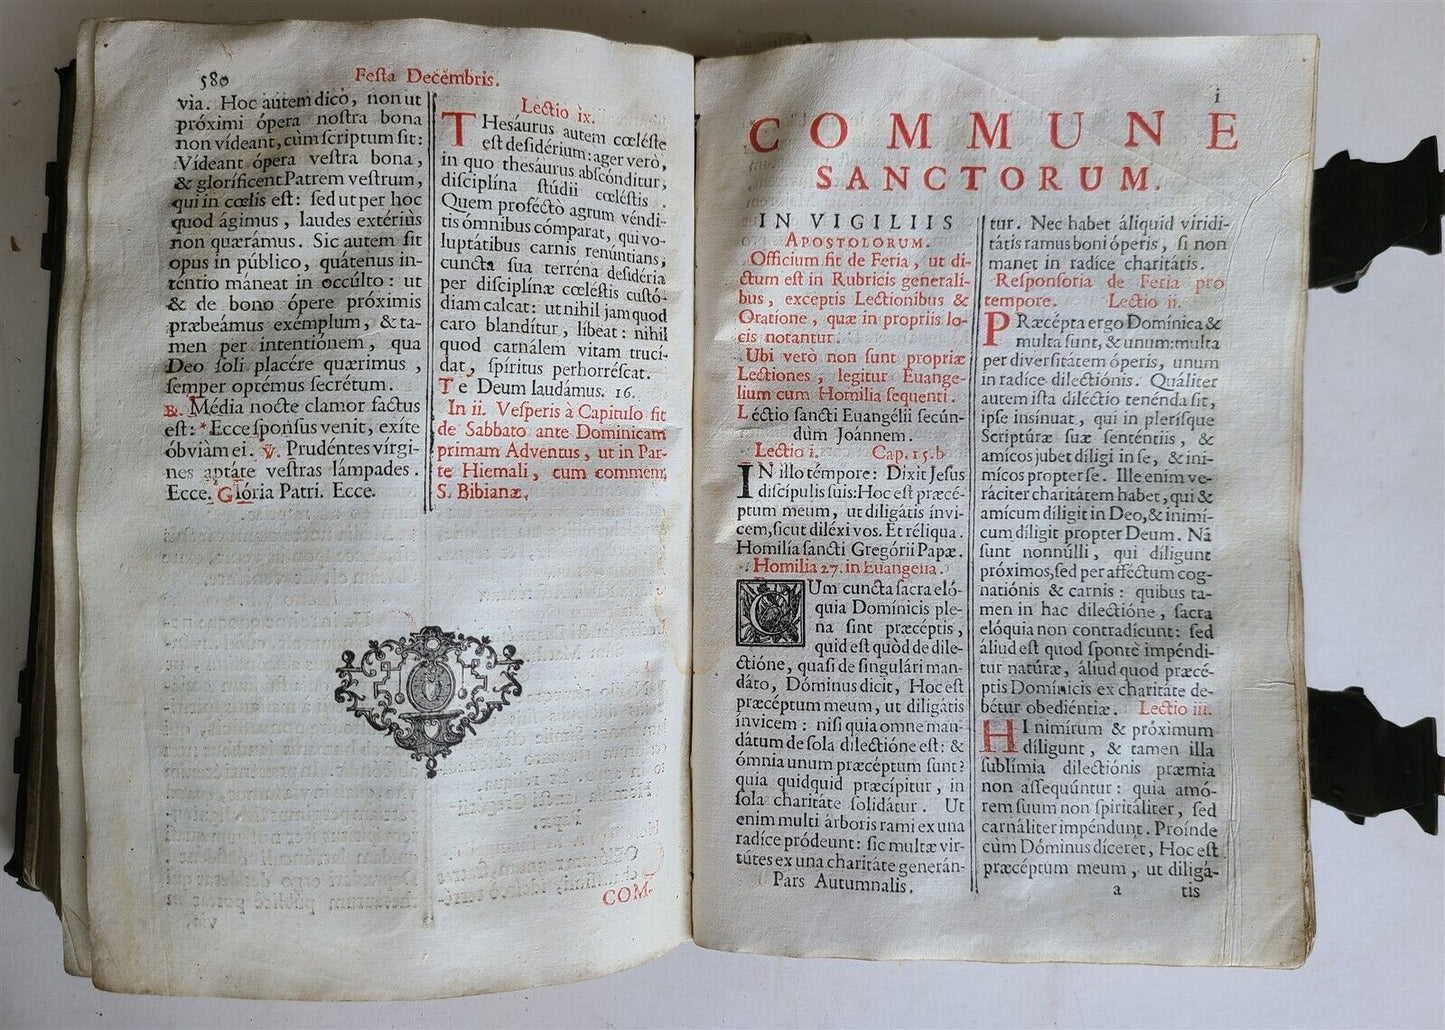 580
Festa Decembris.
via. Hoc autem dico, non ut
próximi ópera nostra bona
non vídeant, cùm scriptum sit:
Vídeant ópera vestra bona,
& gloríficent Patrem vestrum,
qui in cœlis est: sed ut per hoc
quod ágimus, laudes extériùs
non quærámus. Sic autem sit
opus in público, quátenus in-
téntio máneat in occúlto: ut
& de bono ópere próximis
præbeámus exémplum, & ta-
men per intentiónem, qua
Deo soli placére quærimus,
semper optémus secrétum.
R. Média nocte clamor factus
est: * Ecce sponsus venit, exíte
óbviàm ei. V. Prudéntes vírgi-
nes aptáte vestras lámpades.
Ecce. Glória Patri. Ecce.
Lectio ix.
THesáurus autem cœléste
est desidérium: ager verò,
in quo thesáurus abscónditur,
disciplína stúdii cœléstis.
Quem profécto agrum véndi-
tis ómnibus cómparat, qui vo-
luptátibus carnis renúntians,
cuncta sua terréna desidéria
per disciplínæ cœléstis custó-
diam calcat: ut nihil jam quod
caro blandítur, líbeat: nihil
quod carnálem vitam trucí-
dat, spíritus perhorréscat.
Te Deum laudámus. 16.
In ii. Vesperis à Capitulo fit
de Sabbato ante Dominicam
primam Adventus, ut in Par-
te Hiemali, cum commem.
S. Bibianæ.
COM-
i
COMMUNE
SANCTORUM.
IN VIGILIIS
APOSTOLORUM.
Officium fit de Feria, ut di-
ctum est in Rubricis generali-
bus, exceptis Lectionibus &
Oratione, quæ in propriis lo-
cis notantur.
Ubi verò non sunt propriæ
Lectiones, legitur Euange-
lium cum Homilia sequenti.
Léctio sancti Euangélii secún-
dùm Joánnem.
Lectio i. Cap. 15. b
IN illo témpore: Dixit Jesus
discípulis suis: Hoc est præcé-
ptum meum, ut diligátis ínvi-
cem, sicut diléxi vos. Et réliqua.
Homilía sancti Gregórii Papæ.
Homilia 27. in Euangelia.
CUm cuncta sacra eló-
quia Domínicis ple-
na sint præcéptis,
quid est quòd de dile-
ctióne, quasi de singulári man-
dáto, Dóminus dicit, Hoc est
præcéptum meum, ut diligátis
ínvicem: nisi quia omne man-
dátum de sola dilectióne est: &
ómnia unum præcéptum sunt?
quia quidquid præcípitur, in
sola charitáte solidátur. Ut
enim multi árboris rami ex una
radíce pródeunt: sic multæ vir-
tútes ex una charitáte generán-
Pars Autumnalis.
tur. Nec habet áliquid viridi-
tátis ramus boni óperis, si non
manet in radíce charitátis.
Responsoria de Feria pro
tempore. Lectio ii.
PRæcépta ergo Domínica &
multa sunt, & unum: multa
per diversitátem óperis, unum
in radíce dilectiónis. Quáliter
autem ista diléctio tenénda sit,
ipse insínuat, qui in plerísque
Scriptúræ suæ senténtiis, &
amícos jubet díligi in se, & ini-
mícos propter se. Ille enim ve-
ráciter charitátem habet, qui &
amícum díligit in Deo, & inimí-
cum díligit propter Deum. Nã
sunt nonnúlli, qui díligunt
próximos, sed per afféctum cog-
natiónis & carnis: quibus ta-
men in hac dilectióne, sacra
elóquia non contradícunt: sed
áliud est quod sponte impéndi-
tur natúræ, áliud quod præcé-
ptis Domínicis ex charitáte de-
bétur obediéntiæ. Lectio iii.
HI nimírum & próximum
díligunt, & tamen illa
sublímia dilectiónis præmia
non assequúntur: quia amó-
rem suum non spiritáliter, sed
carnáliter impéndunt. Proínde
cùm Dóminus díceret, Hoc est
præcéptum meum, ut diligá-
a tis